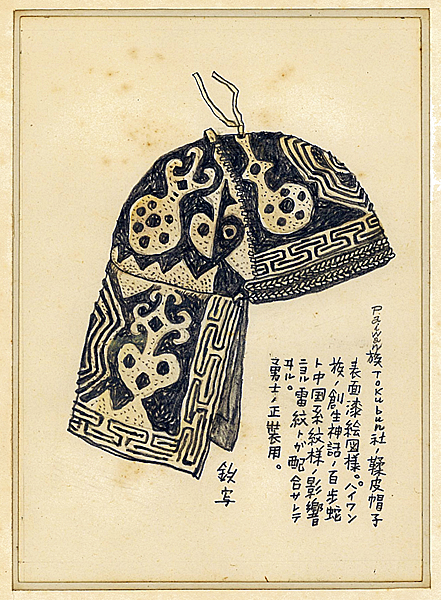 Paiwan族Tokubun社ノ鞣皮帽子
表面漆絵図様。パイワン
族ノ創生神話ノ百歩蛇
ト中国系紋様ノ影響
ニヨル雷紋トガ配合サレテ
ヰル。
勇士ノ正装用。
鉄写